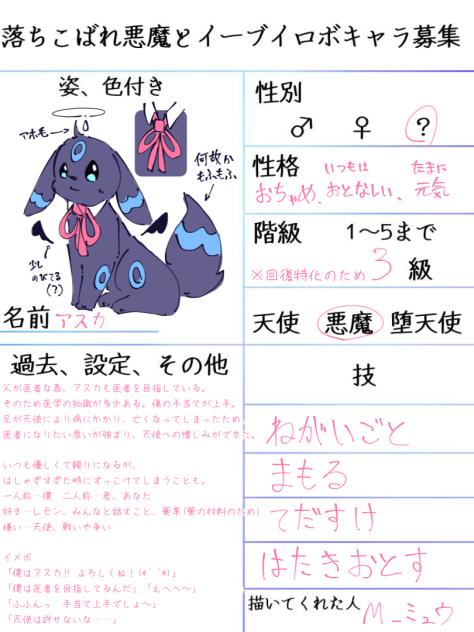 落ちこぼれ悪魔とイーブイロボキャラ募集
姿、色付き
アホ毛→
何故か
もふもふ
少し
のびてる
(?)
名前 アスカ
性別
♂ ♀ ?
性格 いつもは たまに
おちゃめ、おとなしい、元気
階級 1〜5まで
※回復特化のため 3 級
天使 悪魔 堕天使
過去、設定、その他
父が医者な為、アスカも医者を目指している。
そのため医学の知識が多少ある。傷の手当てが上手。
兄が天使により病にかかり、亡くなってしまったため
医者になりたい思いが強まり、天使への憎しみができた。
いつも優しくて頼りになるが、
はしゃぎすぎた時にずっこけてしまうことも。
一人称…僕 二人称…君、あなた
好き…レモン、みんなと話すこと、薬草(薬の材料のため)
嫌い…天使、戦いや争い
イメボ
「僕はアスカ!! よろしくね!(*´˘`*)」
「僕は医者を目指してるんだ」「えへへ〜」
「ふふんっ 手当て上手でしょ〜」
「天使は許せないな……」
技
ねがいごと
まもる
てだすけ
はたきおとす
描いてくれた人 M_ミュウ